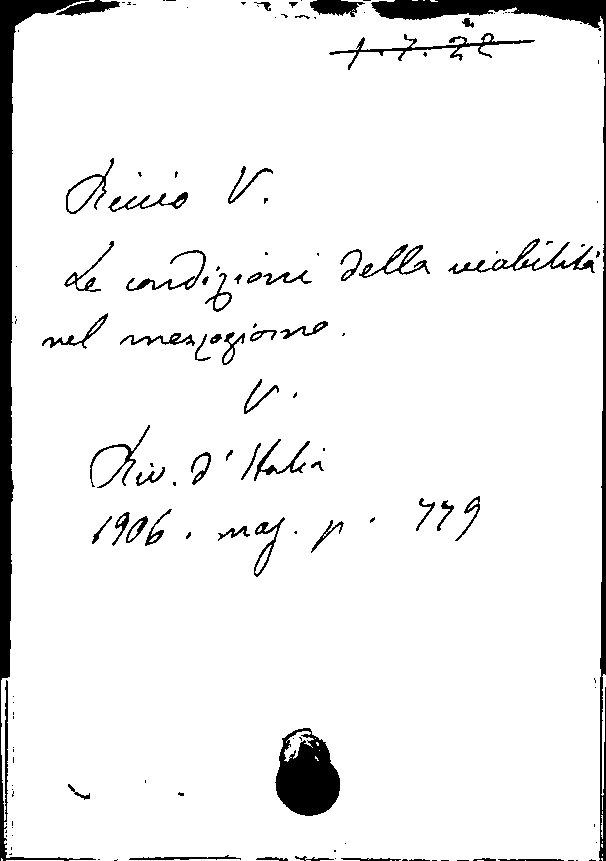 1.7.22
Riccio V.
Le condizioni della viabilità
nel mezzogiorno.
V.
Riv. d'Italia
1906. mag. p. 779